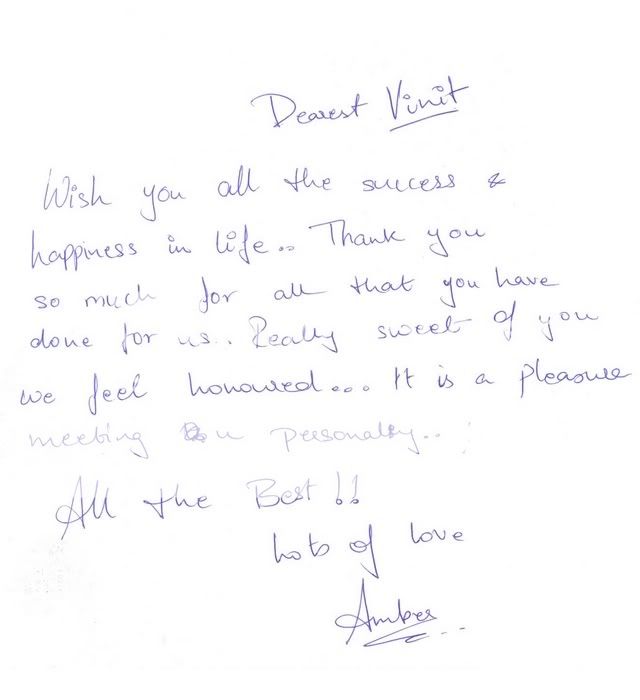 Dearest Vinit
Wish you all the success &
happiness in life.. Thank you
so much for all that you have
done for us.. Really sweet of you
we feel honoured... It is a pleasure
meeting u personally..
All the Best !!
Lots of love
Amber